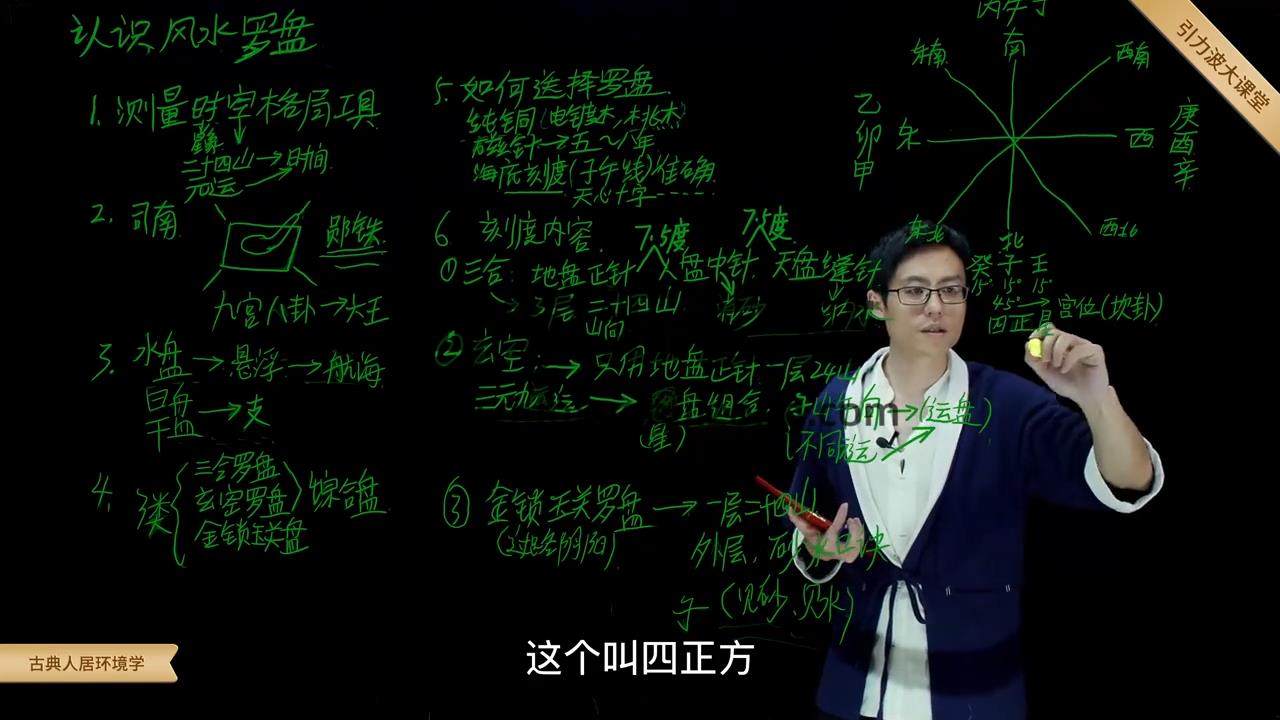 认识风水罗盘
1. 测量时空格局工具
二十四山→时间
元运
2. 司南
郧铁
九宫八卦→大王
3. 水盘→悬浮→航海
旱盘
干盘→支
4. 类
三合罗盘
玄空罗盘
金锁玉关盘
综合盘
5. 如何选择罗盘
纯铜(电镀木,木桃木)
磁针→五~八年
海底刻度(子午线)准确
天心十字
6 刻度内容
7.5度
7.5度
①三合:地盘正针
盘中针
天盘缝针
3层 二十四山
山向
消砂
纳水
②玄空:→只用地盘正针一层24山
三元九运→
盘组合
(星)
子山午向→(运盘)
不同运
③金锁玉关罗盘→一层二十四山
(过路阴阳)
外层,砂水口诀
午(见砂、见水)
丙午丁
东南
南
西南
乙
卯
甲
东
西
庚
酉
辛
东北
北
西北
癸子壬
15° 15° 15
45°→宫位(坎卦)
四正
引力波大课堂
.com
古典人居环境学
这个叫四正方